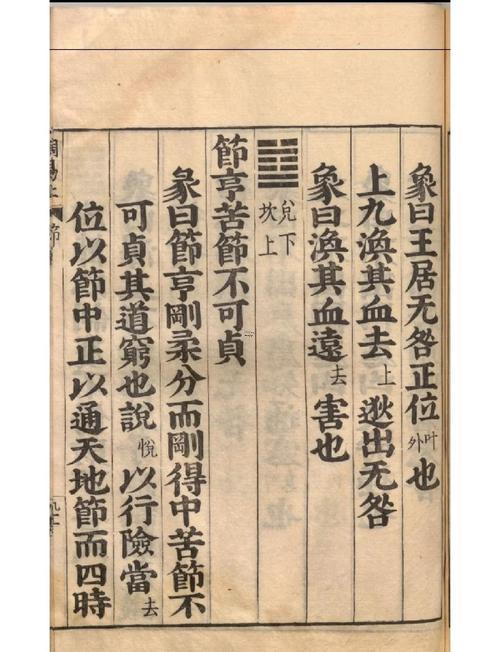 象曰王居无咎正位叶外也
上九渙其血去上逖出无咎
象曰渙其血遠去害也
兌下坎上
節亨苦節不可貞
彖曰節亨剛柔分而剛得中苦節不
可貞其道窮也說悅以行險當去
位以節中正以通天地節而四時